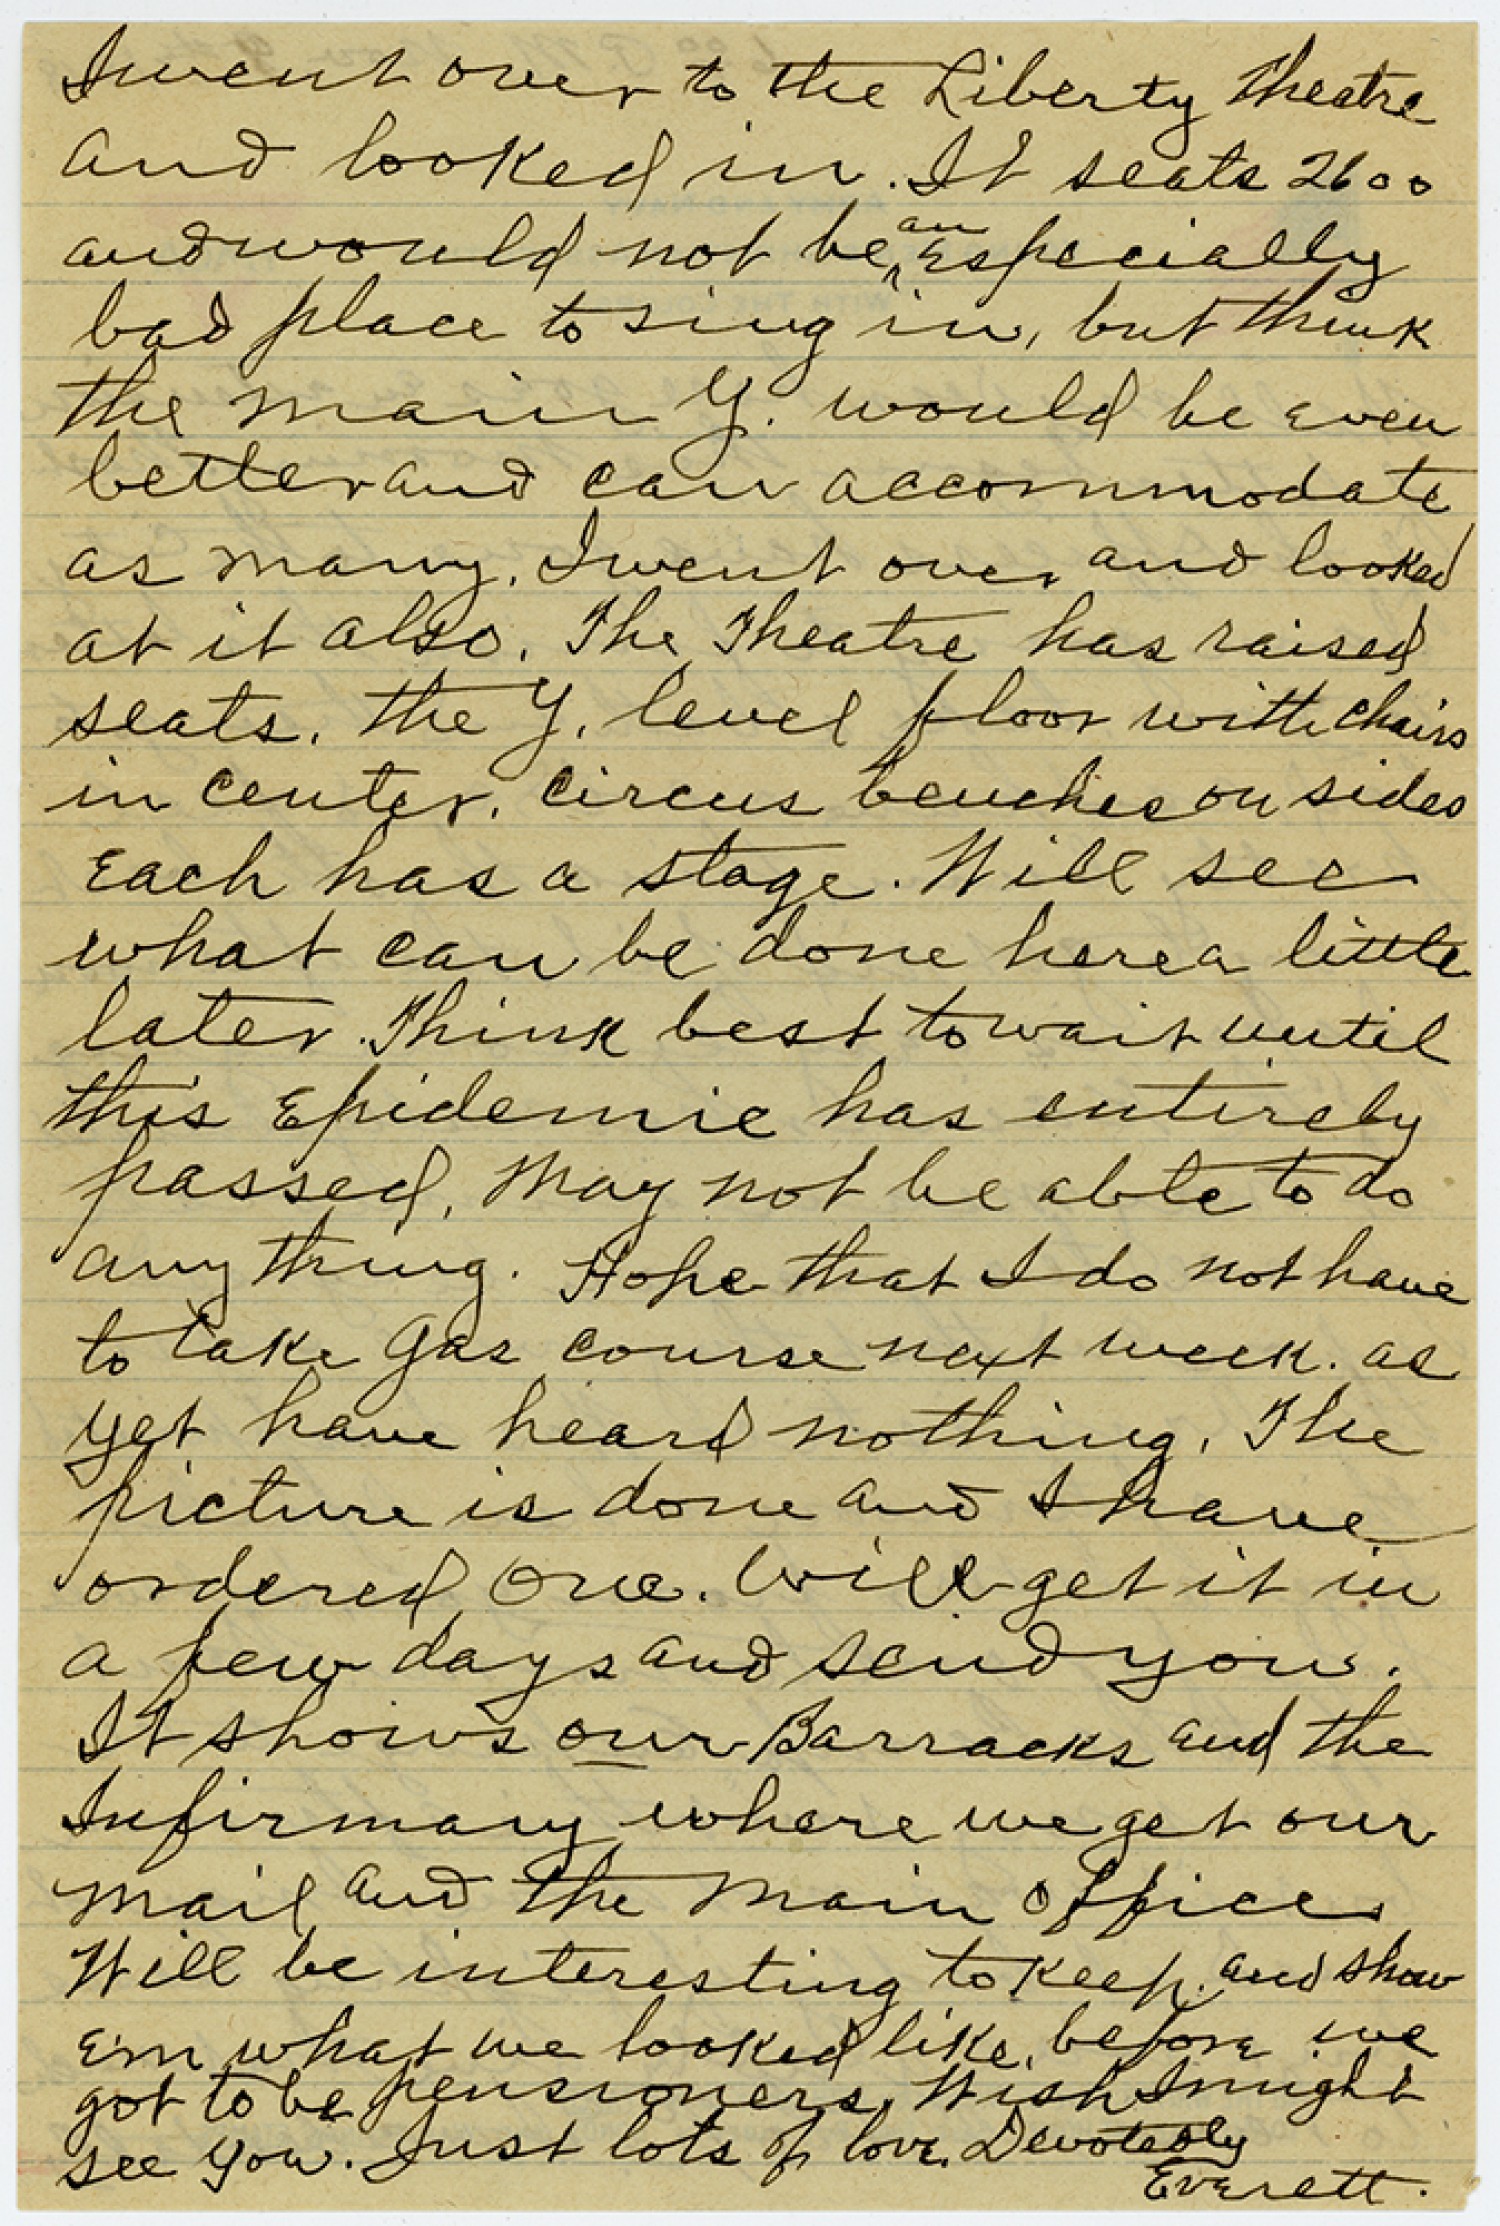 I went over to the Liberty Theatre
and looked in. It seats 2600
and would not be an Especially
bad place to sing in, but think
the main Y. would be even
better and can accommodate
as many. I went over and looked
at it also. The Theatre has raised
seats. the Y, level floor with chairs
in center. circus benches on sides
Each has a stage. Will see
what can be done here a little
later. Think best to wait until
this Epidemic has entirely
passed. May not be able to do
any thing. Hope that I do not have
to take Gas course next week. as
yet have heard nothing. The
picture is done and I have
ordered one. Will get it in
a few days and send you.
It shows our Barracks and the
Infirmary where we get our
mail and the main office.
Will be interesting to keep. and show
Em what we looked like, before we
got to be pensioners. Wish I might
see you. Just lots of love. Devotedly
Everett.